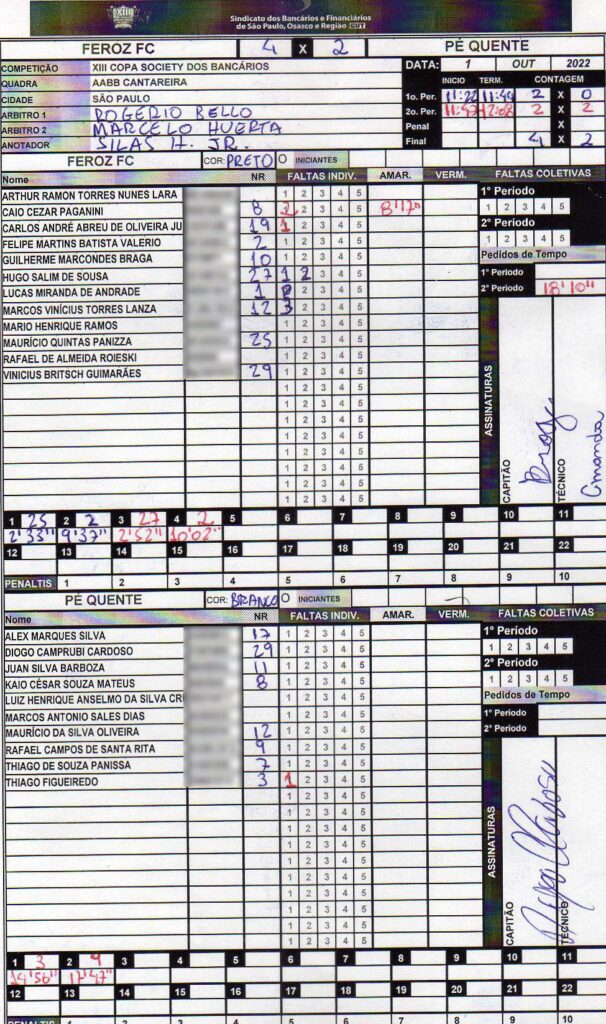 Sindicato dos Bancários e Financiários
de São Paulo, Osasco e Região CUT
FEROZ FC 4 X 2 PÉ QUENTE
COMPETIÇÃO XIII COPA SOCIETY DOS BANCÁRIOS DATA: 1 OUT 2022
QUADRA AABB CANTAREIRA INICIO TERM. CONTAGEM
CIDADE SÃO PAULO 1o. Per. 11:22 11:44 2 X 0
ARBITRO 1 ROGÉRIO BELLO 2o. Per. 11:47 12:08 2 X 2
ARBITRO 2 MARCELO HUERTA Penal X
ANOTADOR SILAS H. JR. Final 4 X 2
FEROZ FC COR: PRETO O INICIANTES
Nome NR FALTAS INDIV. AMAR. VERM. FALTAS COLETIVAS
ARTHUR RAMON TORRES NUNES LARA 1 2 3 4 5 1° Periodo
CAIO CEZAR PAGANINI 8 2 2 3 4 5 8'17" 1 2 3 4 5
CARLOS ANDRÉ ABREU DE OLIVEIRA JU 19 1 2 3 4 5 2° Periodo
FELIPE MARTINS BATISTA VALERIO 2 1 2 3 4 5 1 2 3 4 5
GUILHERME MARCONDES BRAGA 10 1 2 3 4 5 Pedidos de Tempo
HUGO SALIM DE SOUSA 27 1 2 3 4 5 1° Periodo
LUCAS MIRANDA DE ANDRADE 1 2 3 4 5 2° Periodo 18'10"
MARCOS VINÍCIUS TORRES LANZA 12 3 2 3 4 5
MARIO HENRIQUE RAMOS 1 2 3 4 5
MAURÍCIO QUINTAS PANIZZA 25 1 2 3 4 5
RAFAEL DE ALMEIDA ROIESKI 1 2 3 4 5
VINICIUS BRITSCH GUIMARÃES 29 1 2 3 4 5
1 2 3 4 5
1 2 3 4 5
1 2 3 4 5
1 2 3 4 5
1 2 3 4 5
1 2 3 4 5
1 2 3 4 5
1 2 3 4 5
ASSINATURAS
CAPITÃO
TÉCNICO
Amanda
1 25 2 2 3 27 4 2 5 6 7 8 9 10 11
2'33" 9'37" 2'52" 10'02"
12 13 14 15 16 17 18 19 20 21 22
PENALTIS 1 2 3 4 5 6 7 8 9 10
PÉ QUENTE COR: BRANCO O INICIANTES
Nome NR FALTAS INDIV. AMAR. VERM. FALTAS COLETIVAS
ALEX MARQUES SILVA 17 1 2 3 4 5 1° Período
DIOGO CAMPRUBI CARDOSO 29 1 2 3 4 5 1 2 3 4 5
JUAN SILVA BARBOZA 11 1 2 3 4 5 2° Período
KAIO CÉSAR SOUZA MATEUS 8 1 2 3 4 5 1 2 3 4 5
LUIZ HENRIQUE ANSELMO DA SILVA CRU 1 2 3 4 5 Pedidos de Tempo
MARCOS ANTONIO SALES DIAS 1 2 3 4 5 1° Período
MAURÍCIO DA SILVA OLIVEIRA 12 1 2 3 4 5 2° Período
RAFAEL CAMPOS DE SANTA RITA 9 1 2 3 4 5
THIAGO DE SOUZA PANISSA 7 1 2 3 4 5
THIAGO FIGUEIREDO 3 1 2 3 4 5
1 2 3 4 5
1 2 3 4 5
1 2 3 4 5
1 2 3 4 5
1 2 3 4 5
1 2 3 4 5
1 2 3 4 5
1 2 3 4 5
1 2 3 4 5
1 2 3 4 5
ASSINATURAS
CAPITÃO
TÉCNICO
1 3 2 9 3 4 5 6 7 8 9 10 11
14'56" 17'47"
12 13 14 15 16 17 18 19 20 21 22
PENALTIS 1 2 3 4 5 6 7 8 9 10